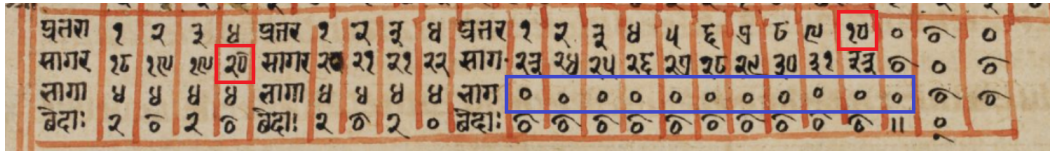 प्रतरा १ २ ३ ४ प्रतर १ २ ३ ४ प्रतर १ २ ३ ४ ५ ६ ७ ८ ९ १० ० ० ०
सागर १८ १९ १९ २० सागर २० २१ २१ २२ साग॰ २३ २४ २५ २६ २७ २८ २९ ३० ३१ ३३ ० ० ०
सागा ४ ४ ४ ४ सागा ४ ४ ४ ४ साग ० ० ० ० ० ० ० ० ० ० ० ० ०
बेदाः २ ० २ ० बेदाः २ ० २ ० बेदाः ० ० ० ० ० ० ० ० ० ० ॥ ०